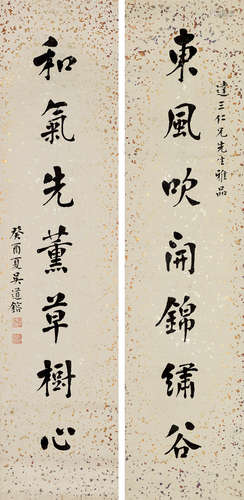 達三仁兄先生雅品
東風吹開錦繡谷
和氣先薰草樹心
癸酉夏吳道鎔